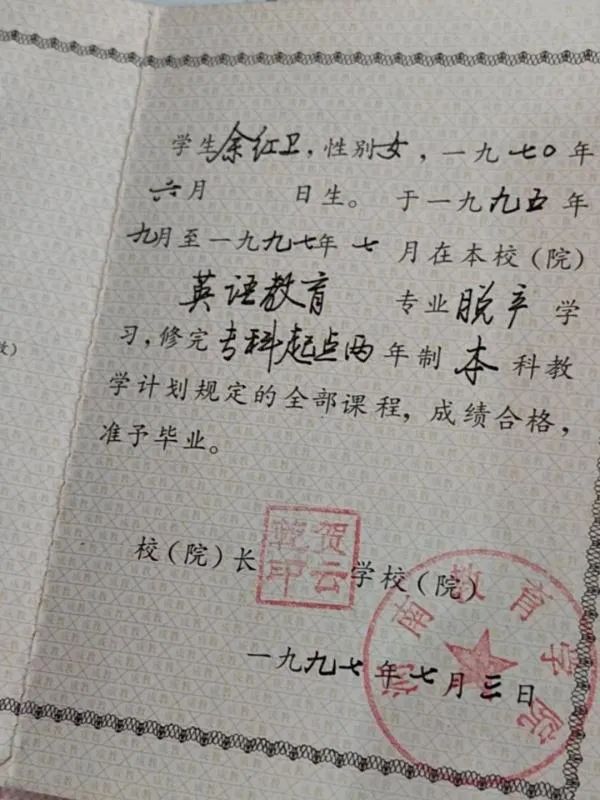 学生余红卫，性别女，一九七〇年
六月 日生。于一九九五年
九月至一九九七年七月在本校（院）
英语教育 专业脱产学
习，修完专科起点两年制本科教
学计划规定的全部课程，成绩合格，
准予毕业。
校（院）长
贺云乾印
学校（院）
湖南教育学院
一九九七年七月三日